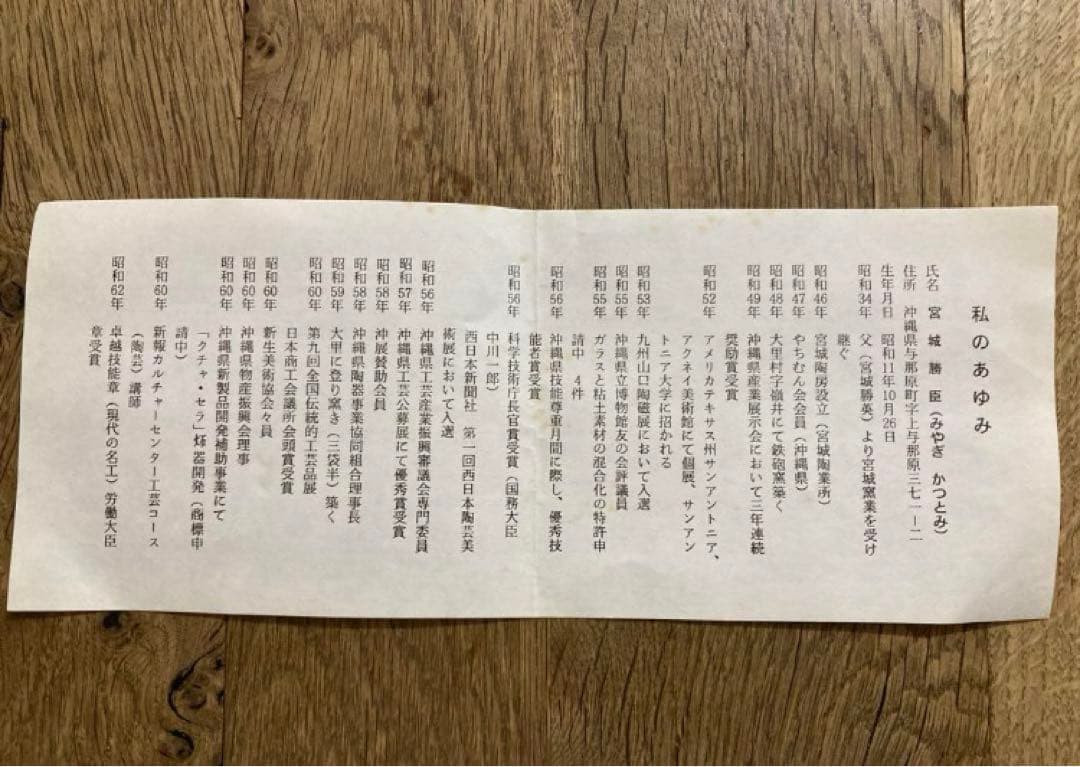 私のあゆみ
氏名　宮城勝臣（みやぎ　かつとみ）
住所　沖縄県与那原町字上与那原三七一ー二
生年月日　昭和11年10月26日
昭和34年　父（宮城勝英）より宮城窯業を受け
継ぐ
昭和46年　宮城陶房設立（宮城陶業所）
昭和47年　やちむん会会員（沖縄県）
昭和48年　大里村字嶺井にて鉄砲窯築く
昭和49年　沖縄県産業展示会において三年連続
奨励賞受賞
昭和52年　アメリカテキサス州サンアントニア、
アクネイ美術館にて個展、サンアン
トニア大学に招かれる
昭和53年　九州山口陶磁展において入選
昭和55年　沖縄県立博物館友の会評議員
昭和55年　ガラスと粘土素材の混合化の特許申
請中　4件
昭和56年　沖縄県技能尊重月間に際し、優秀技
能者賞受賞
昭和56年　科学技術庁長官賞受賞（国務大臣
中川一郎）
西日本新聞社　第一回西日本陶芸美
術展において入選
昭和56年　沖縄県工芸産業振興審議会専門委員
昭和57年　沖縄県工芸公募展にて優秀賞受賞
昭和58年　沖展賛助会員
昭和58年　沖縄県陶器事業協同組合理事長
昭和59年　大里に登り窯き（三袋半）築く
昭和60年　第九回全国伝統的工芸品展
日本商工会議所会頭賞受賞
昭和60年　新生美術協会々員
昭和60年　沖縄県物産振興会理事
昭和60年　沖縄県新製品開発補助事業にて
「クチャ・セラ」炻器開発（商標申
請中）
昭和60年　新報カルチャーセンター工芸コース
（陶芸）講師
昭和62年　卓越技能章（現代の名工）労働大臣
章受賞